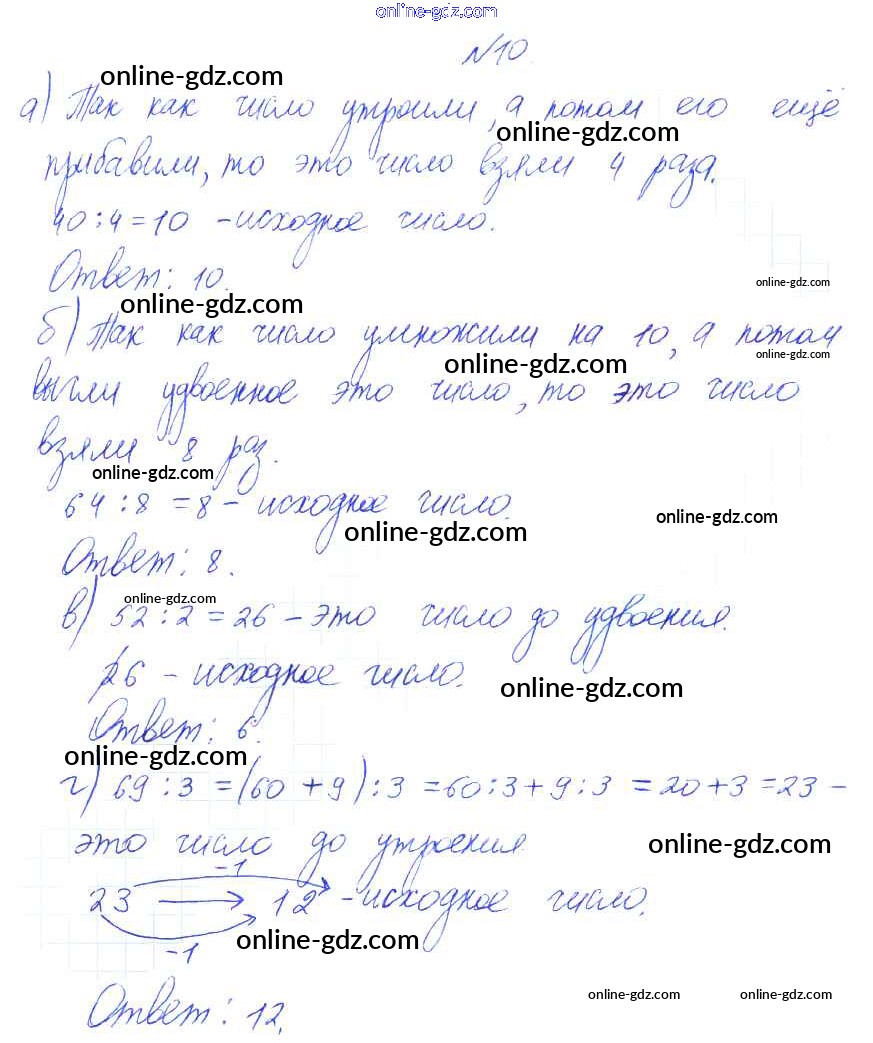 online-gdz.com
№10.
online-gdz.com
а) Так как число утроили, а потом его ещё
online-gdz.com
прибавили, то это число взяли 4 раза.
40:4=10 - исходное число.
Ответ: 10.
online-gdz.com
online-gdz.com
б) Так как число умножили на 10, а потом
online-gdz.com
online-gdz.com
вычли удвоенное это число, то это число
взяли 8 раз.
online-gdz.com
64:8=8 - исходное число.
online-gdz.com
online-gdz.com
Ответ: 8.
online-gdz.com
в) 52:2=26 - это число до удвоения.
26 - исходное число.
online-gdz.com
Ответ: 6.
online-gdz.com
г) 69:3=(60+9):3=60:3+9:3=20+3=23 -
это число до утроения.
online-gdz.com
-1
23 → 12 - исходное число.
-1
online-gdz.com
Ответ: 12.
online-gdz.com
online-gdz.com